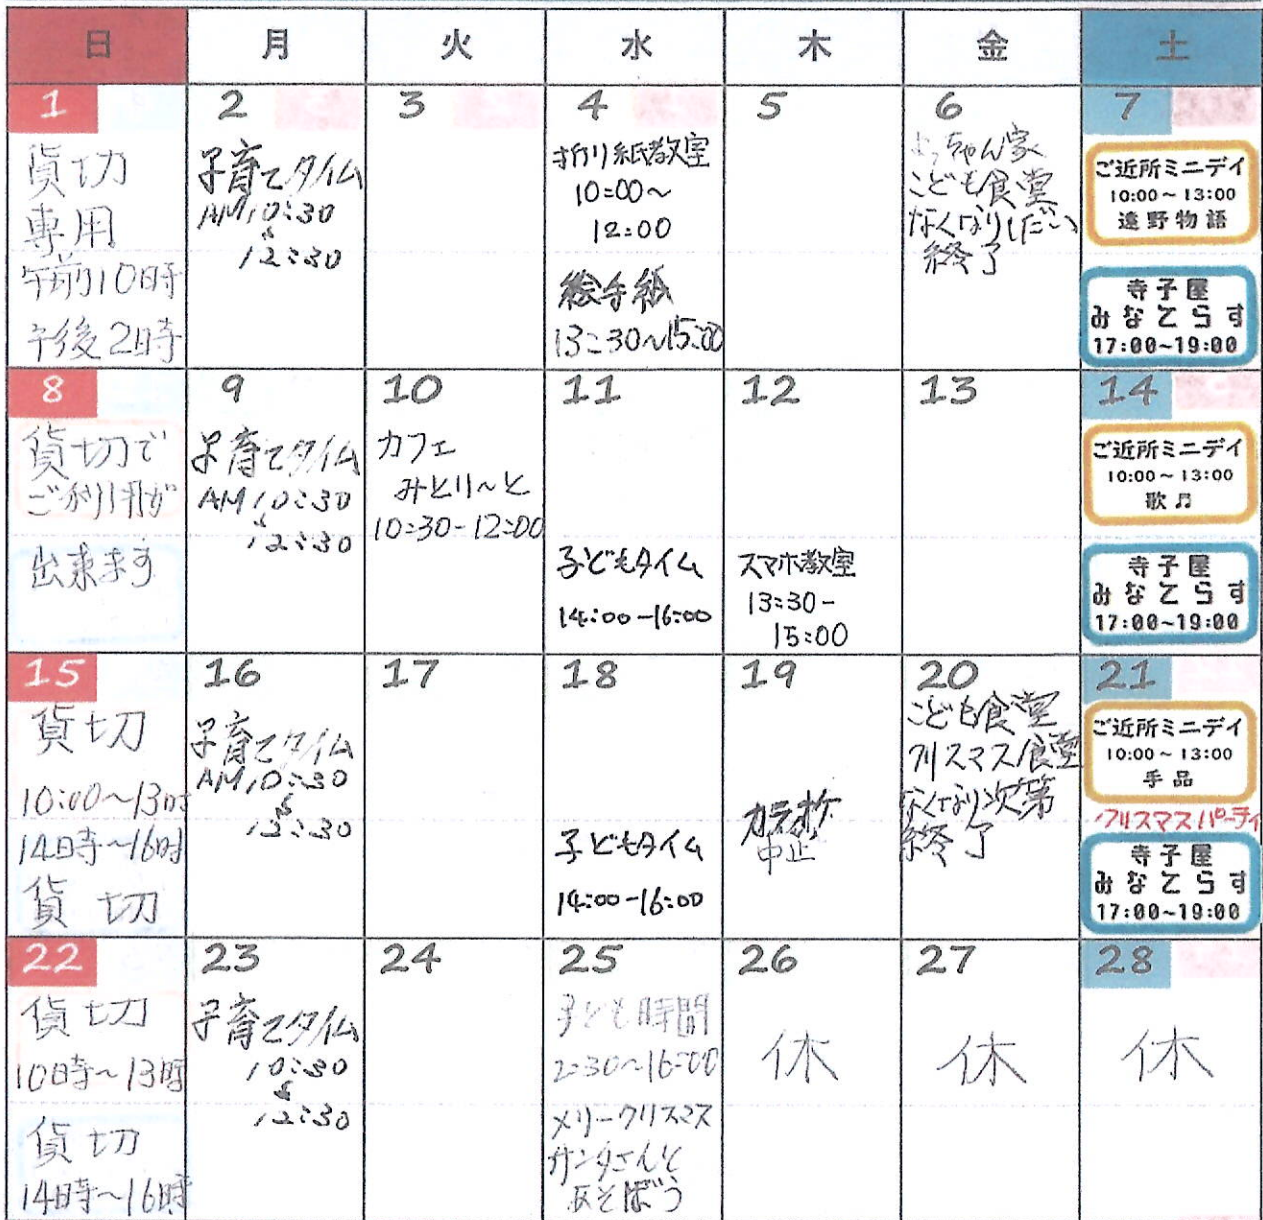 日 月 火 水 木 金 土
1
貸切
専用
午前10時
午後2時
2
子育てタイム
AM10:30
〜
12:30
3
4
折り紙教室
10:00〜
12:00
絵手紙
13:30〜15:00
5
6
よっちゃん家
こども食堂
なくなりしだい
終了
7
ご近所ミニデイ
10:00~13:00
遠野物語
寺子屋
みなとらす
17:00~19:00
8
貸切で
ご利用が
出来ます
9
子育てタイム
AM10:30
〜
12:30
10
カフェ
みとり〜と
10:30-12:00
11
子どもタイム
14:00-16:00
12
スマホ教室
13:30-
15:00
13
14
ご近所ミニデイ
10:00~13:00
歌♫
寺子屋
みなとらす
17:00~19:00
15
貸切
10:00〜13時
14時〜16時
貸切
16
子育てタイム
AM10:30
〜
12:30
17
18
子どもタイム
14:00-16:00
19
カラオケ
中止
20
こども食堂
クリスマス食堂
なくなり次第
終了
21
ご近所ミニデイ
10:00~13:00
手品
クリスマスパーティ
寺子屋
みなとらす
17:00~19:00
22
貸切
10時〜13時
貸切
14時〜16時
23
子育てタイム
10:30
〜
12:30
24
25
子ども時間
2:30〜16:00
メリークリスマス
サンタさんと
あそぼう
26
休
27
休
28
休